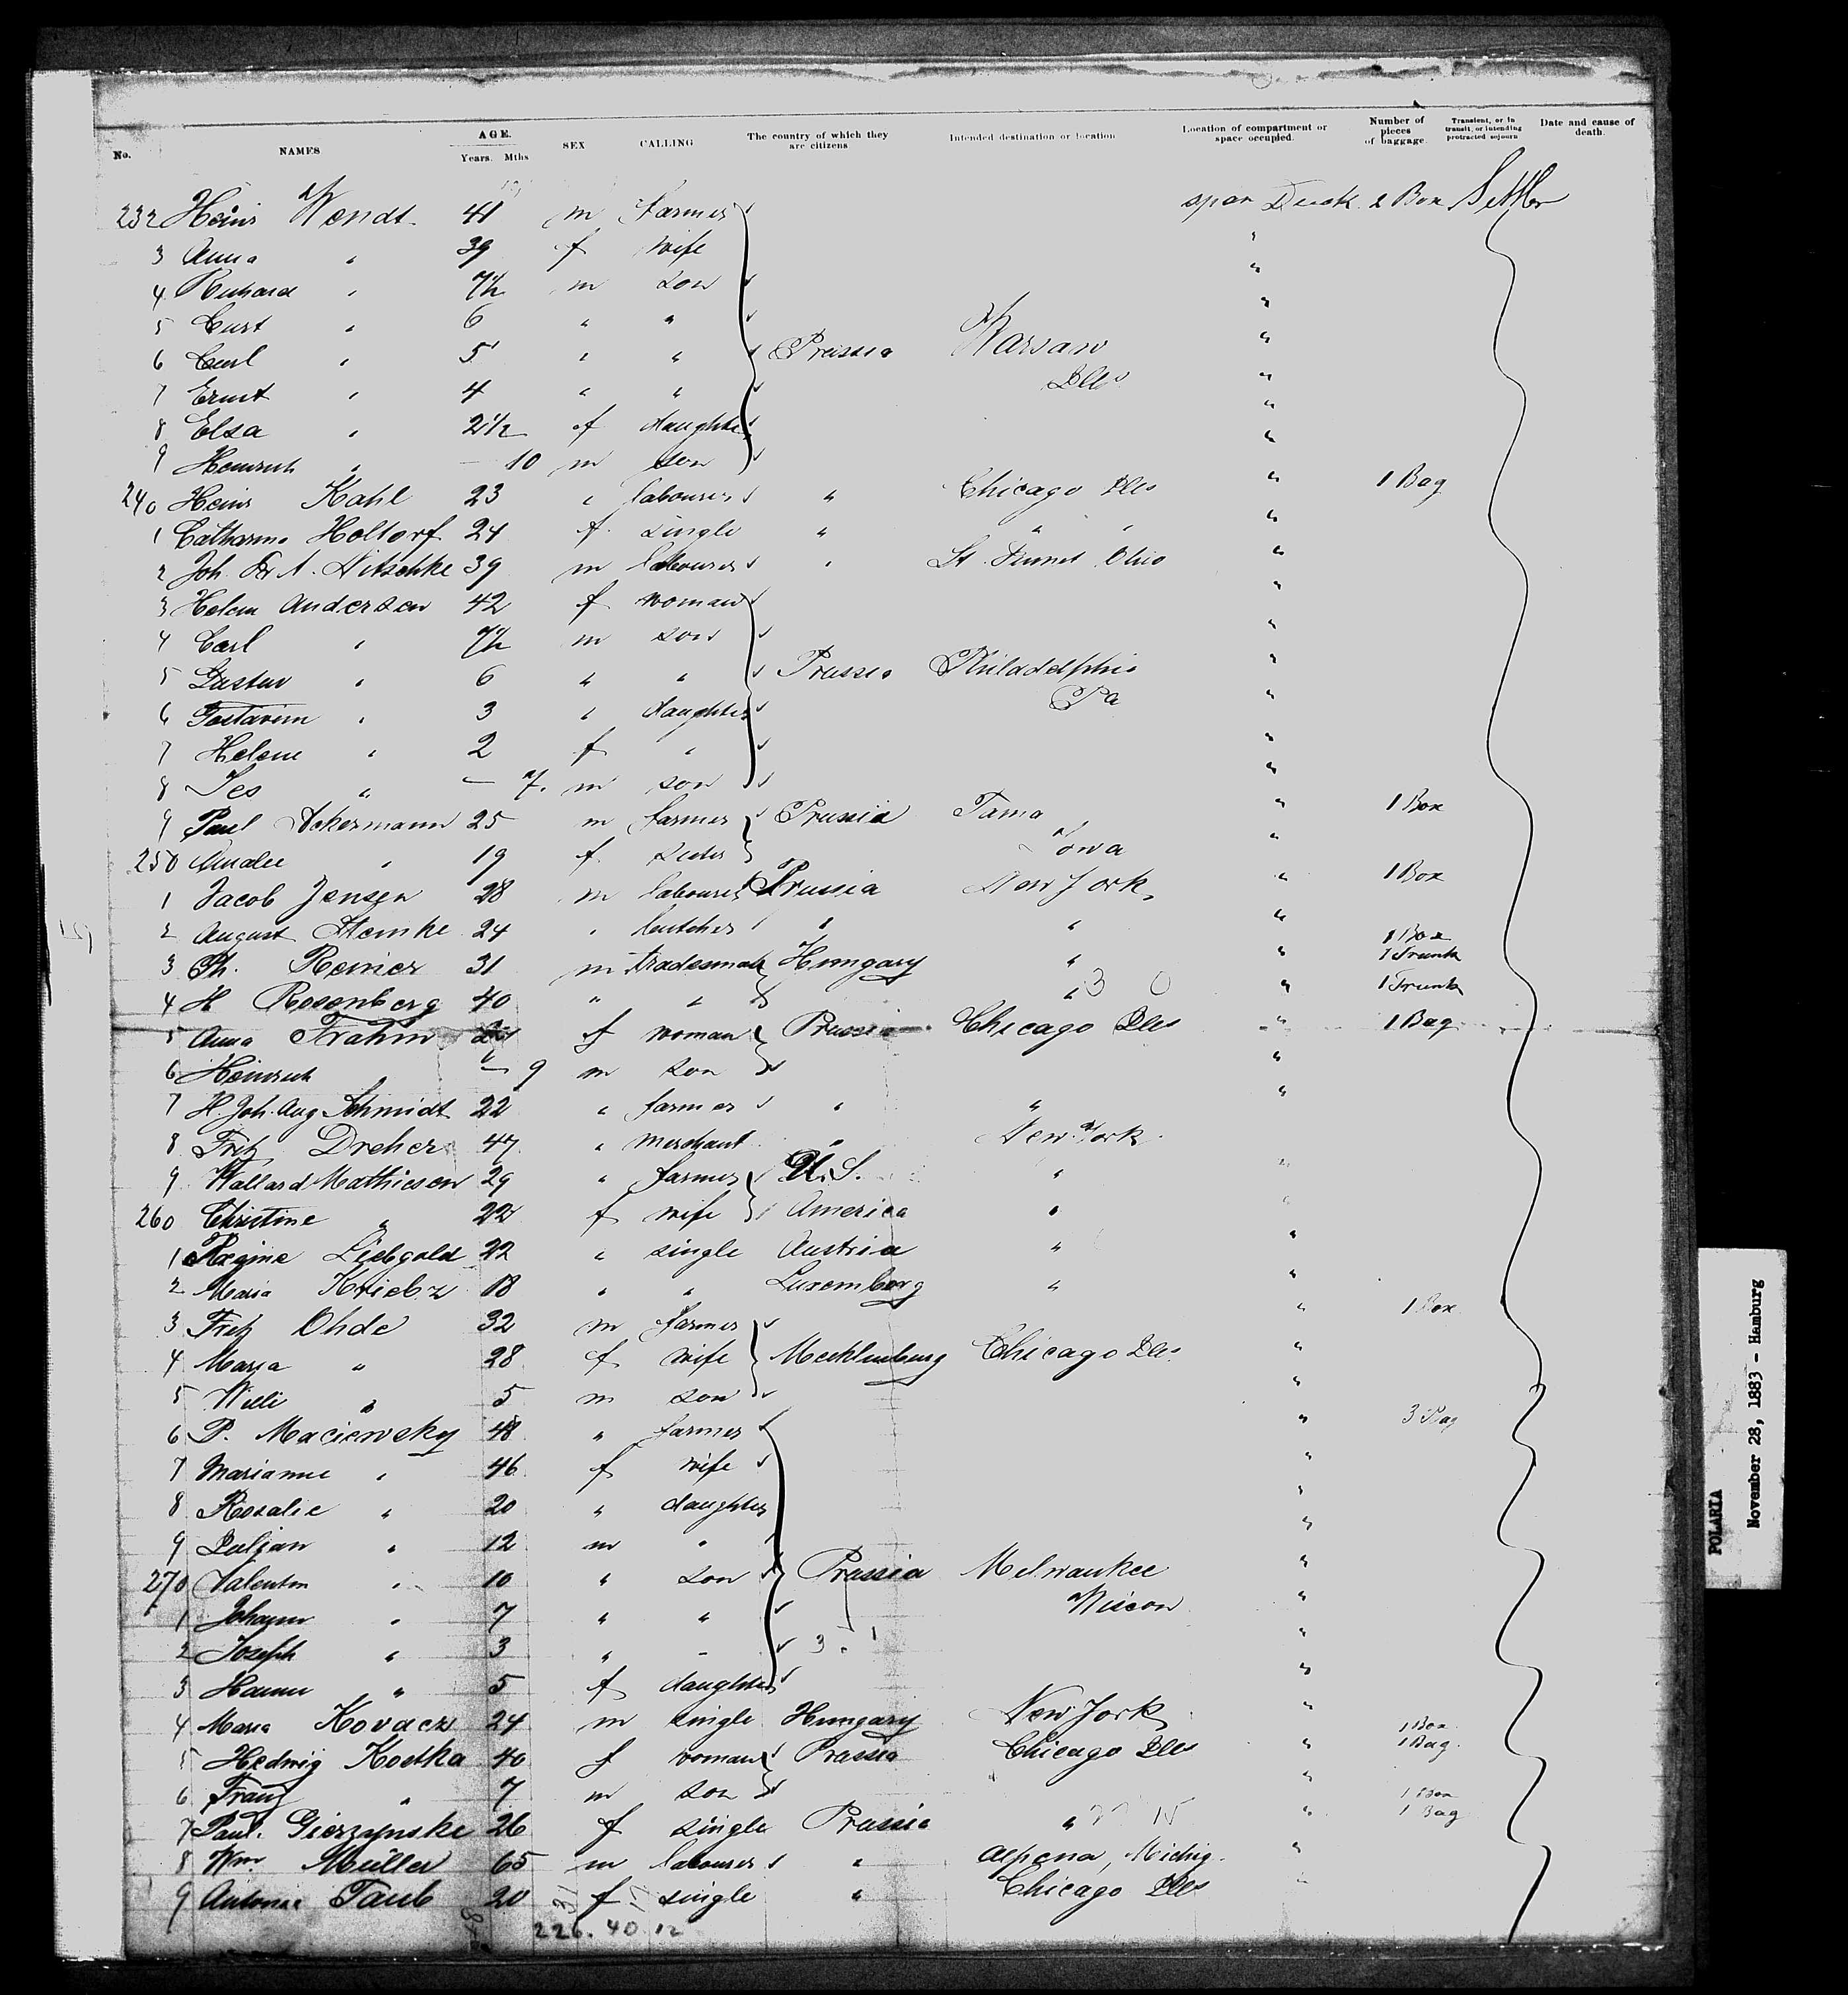 No. NAMES AGE. Years. Mths SEX CALLING The country of which they are citizens Intended destination or location Location of compartment or space occupied. Number of pieces of baggage. Transient, or in transit, or intending protracted sojourn Date and cause of death.
232 Heinr Wendt 41 m farmer 2 Box Settler
3 Anna " 39 f wife "
4 Richard " 7½ m son "
5 Curt " 6 " " "
6 Carl " 5 " " Prussia Warsaw "
7 Ernst " 4 " " Ills "
8 Elsa " 2½ f daughter "
9 Heinrich " — 10 m son "
240 Heinr Kahl 23 " labourer " Chicago Ills " 1 Bag
1 Catharina Holtorf 24 f single " " " "
2 Joh. A. Nitschke 39 m labourer " Ohio "
3 Helene Andersen 42 f woman "
4 Carl " 7½ m son "
5 Gustav " 6 " " Prussia Philadelphia "
6 " 3 " daughter Pa "
7 Helene " 2 f " "
8 Jes " — 7. m son "
9 Paul Ackermann 25 m farmer Prussia Tama " 1 Box
250 Amalie " 19 f sister Iowa "
1 Jacob Jensen 28 m labourer Prussia New York " 1 Box
2 August Hemke 24 " butcher " " " 1 Box
3 Ph. Reinier 31 m tradesman Hungary " " 1 Trunk
4 H Rosenberg 40 " " " 3 0 " 1 Trunk
5 Anna Frahm f woman Prussia Chicago Ills " 1 Bag
6 Heinrich " — 9 m son "
7 H. Joh. Aug Schmidt 22 " farmer " " "
8 Fritz Dreher 47 " merchant " New York
9 Wallard Mathiesen 29 " farmer U.S. " "
260 Christine " 22 f wife America " "
1 Regine Liebgold 22 " single Austria " "
2 Maria Kriebz 18 " " Luxemburg " "
3 Fritz Ohde 32 m farmer " 1 Box
4 Maria " 28 f wife Mecklenburg Chicago Ills "
5 Willi " 5 m son "
6 P. Maciewsky 48 " farmer " 3 Bag
7 Marianne " 46 f wife "
8 Rosalie " 20 " daughter "
9 Julian " 12 m " "
270 Valentin " 10 " son Prussia Milwaukee "
1 Johann " 7 " " Wiscon "
2 Joseph " 3 " " "
3 Hanne " 5 f daughter "
4 Maria Kovacz 24 m single Hungary New York " 1 Box
5 Hedwig Kostka 40 f woman Prussia Chicago Ills " 1 Bag.
6 Franz " 7 m son " 1 Box
7 Paul. Gierzynske 26 f single Prussia " " 1 Bag
8 Wm Müller 65 m labourer " Alpena, Michig. "
9 Antonie Taub 20 f single " Chicago Ills "
226. 40 12
POLARIA
November 28, 1883 - Hamburg